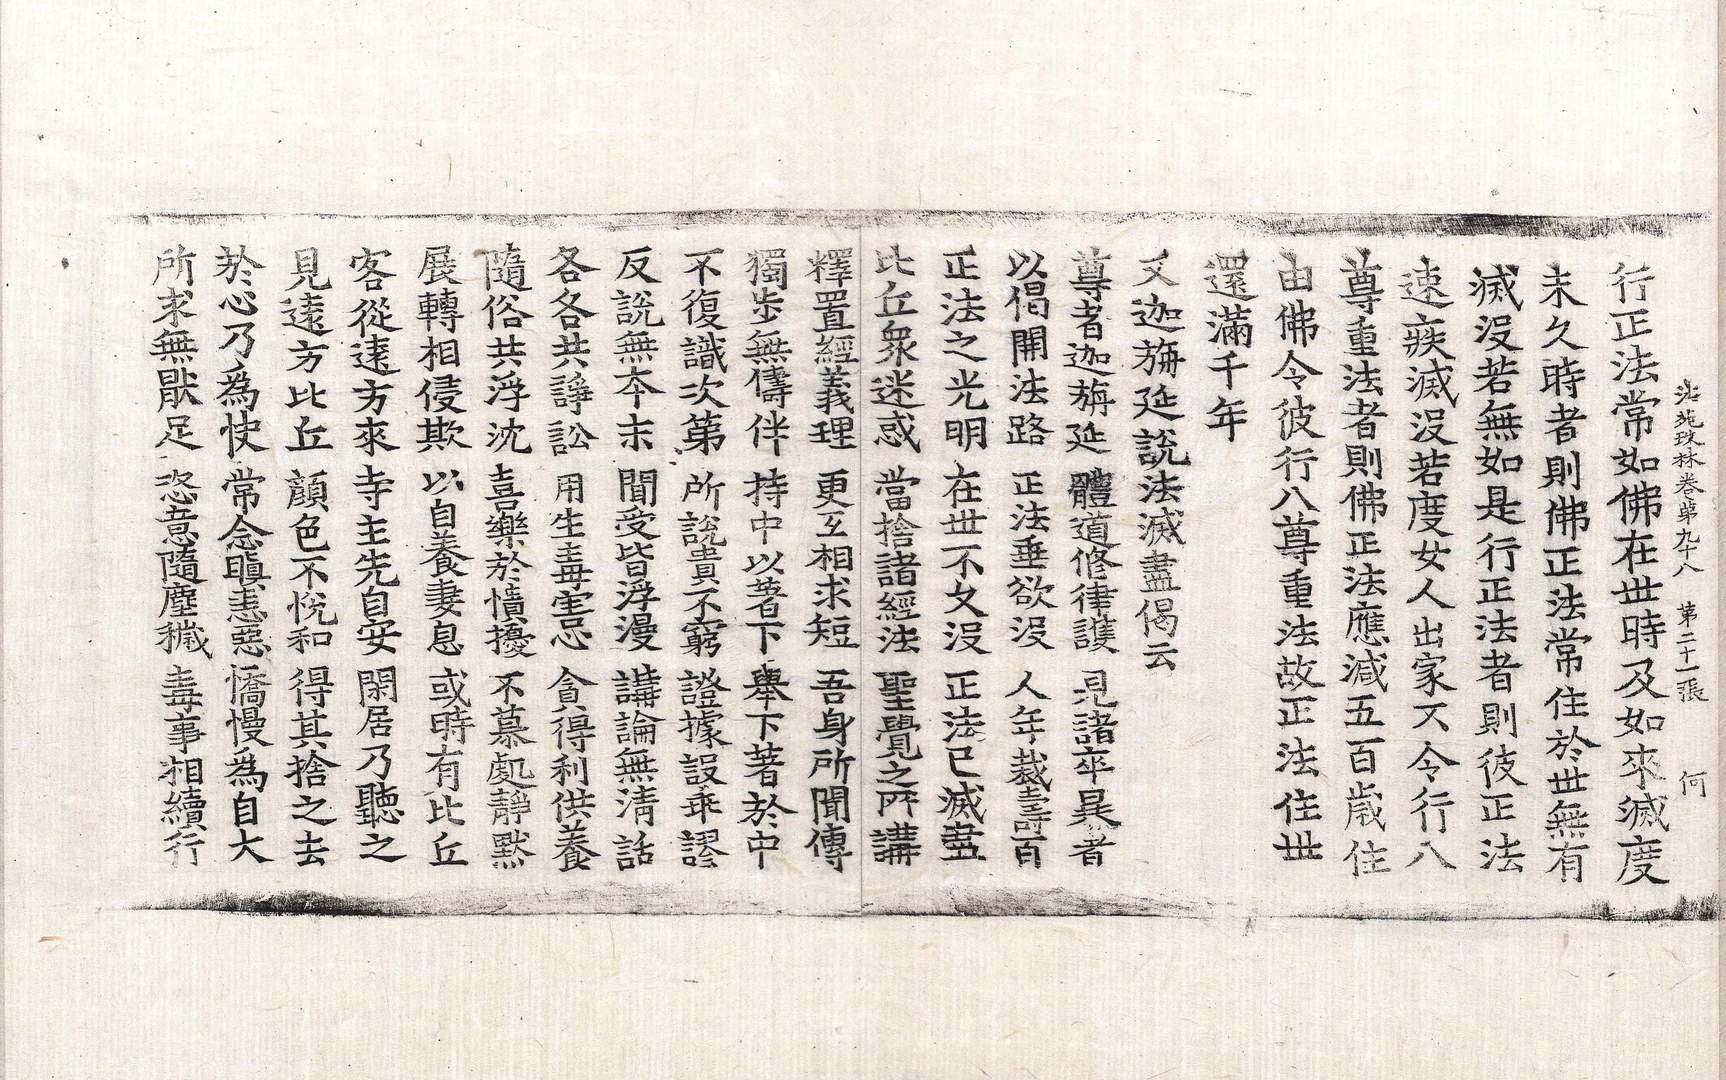 法苑珠林卷第九十八 第二十一張 何
行正法常如佛在世時及如來滅度
未久時者則佛正法常住於世無有
滅没若無如是行正法者則彼正法
速疾滅没若度女人出家不令行八
尊重法者則佛正法應減五百歲住
由佛令彼行八尊重法故正法住世
還滿千年
又迦旃延說法滅盡偈云
尊者迦旃延 體道修律護 見諸卒暴者
以偈開法路 正法垂欲没 人年裁壽百
正法之光明 在世不久没 正法已滅盡
比丘衆迷惑 當捨諸經法 聖覺之所講
釋置經義理 更互相求短 吾身所聞傳
獨步無儔伴 持中以著下 舉下著於中
不復識次第 所說貴不窮 證據誤乖謬
反說無本末 聞受皆浮漫 講論無清話
各各共諍訟 用生毒害忌 貪得利供養
隨俗共浮沈 喜樂於憒擾 不慕處靜黙
展轉相侵欺 以自養妻息 或時有比丘
客從遠方來 寺主先自安 閑居乃聽之
見遠方比丘 顔色不悅和 得其捨之去
於心乃爲快 常念瞋恚惡 憍慢為自大
所求無猒足 恣意隨塵穢 毒事相續行